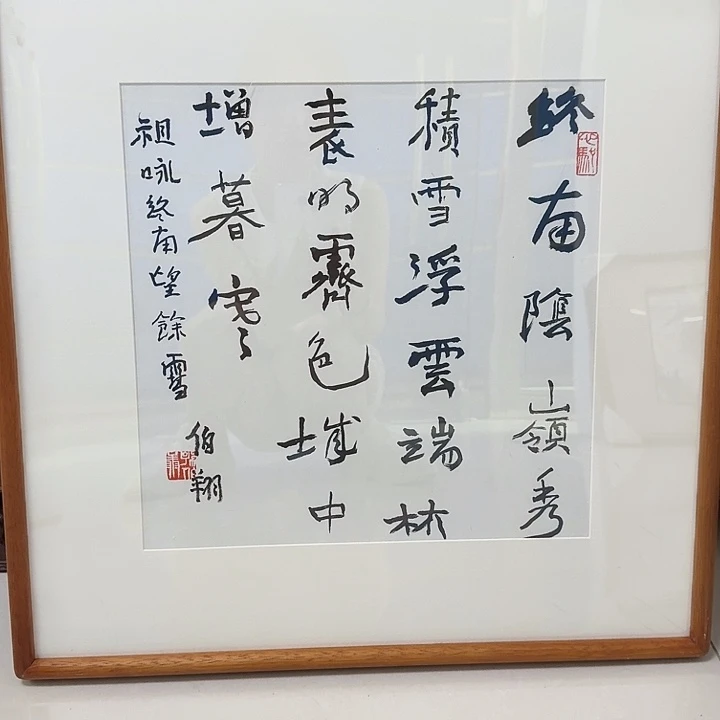 終南陰嶺秀
積雪浮雲端林
表明霽色城中
增暮寒
祖咏終南望餘雪
伯翔